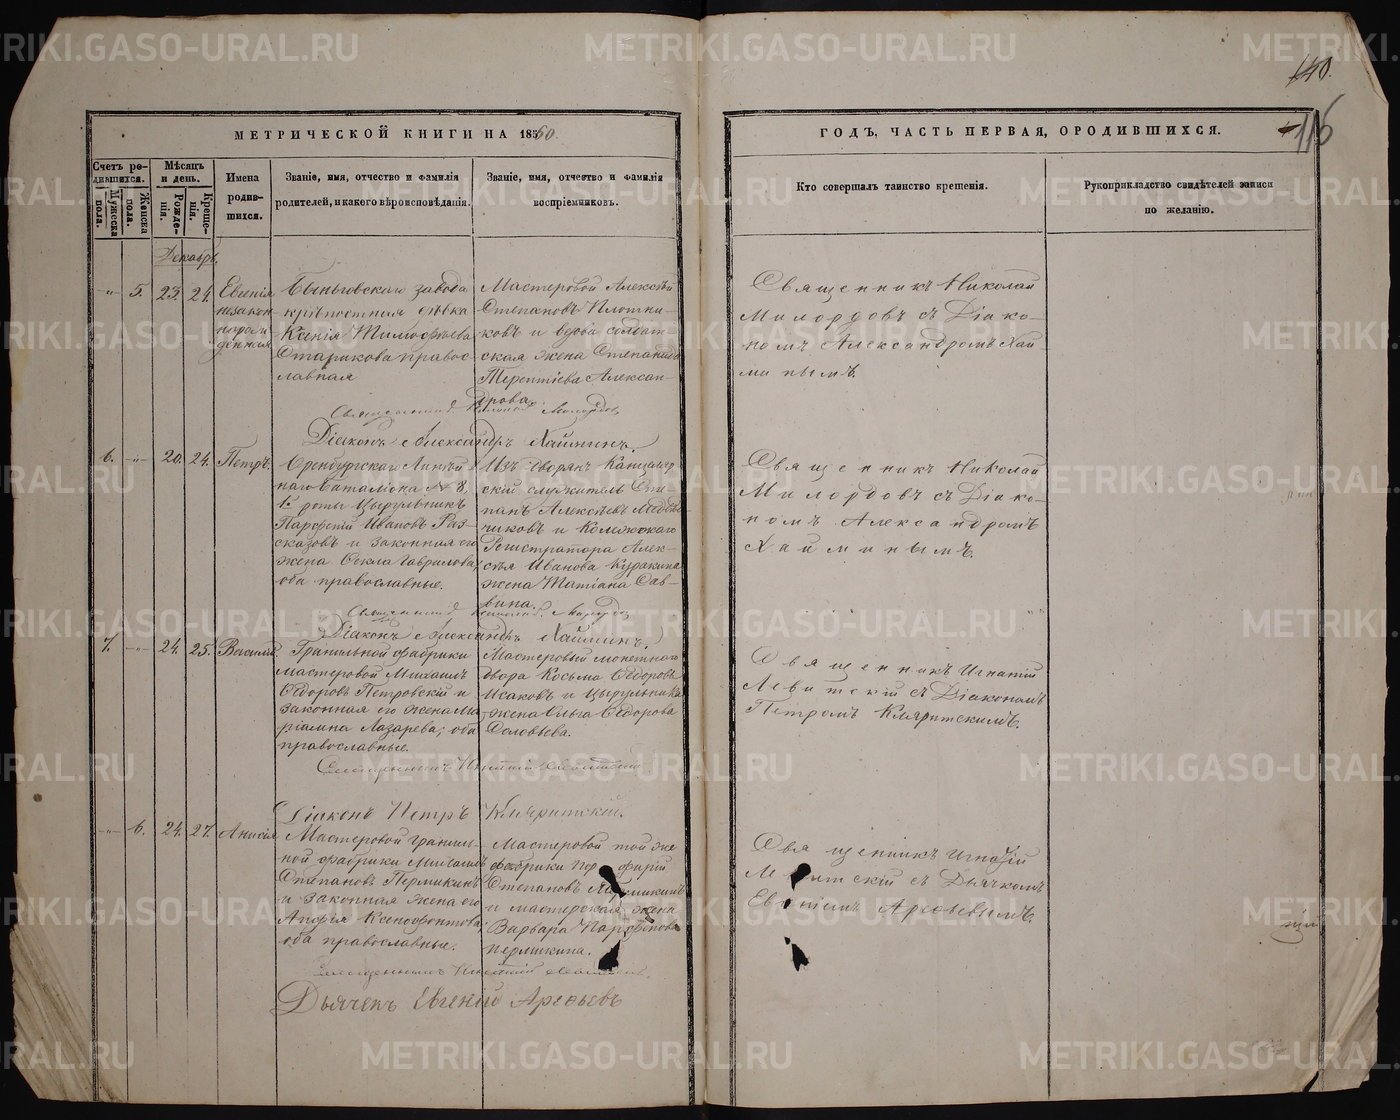 METRIKI.GASO-URAL.RU
140.
116
МЕТРИЧЕСКОЙ КНИГИ НА 1860.
Счетъ родившихся.
Мужеска пола.
Женска пола.
Мѣсяцъ и день.
Рожденія.
Крещенія.
Имена родившихся.
Званіе, имя, отчество и фамилія родителей, и какого вѣроисповѣданія.
Званіе, имя, отчество и фамилія воспріемниковъ.
ГОДЪ, ЧАСТЬ ПЕРВАЯ, О РОДИВШИХСЯ.
Кто совершалъ таинство крещенія.
Рукоприкладство свидѣтелей записи по желанію.
Декабрь.
5. 23. 24. Евгенія незаконнорожденная
Быньговскаго завода
крѣпостная дѣвка
Ксенія Тимофѣева
Старикова православная
Мастеровой Алексѣй
Степановъ Плотниковъ и вдова солдатская жена Степанида
Терентіева Александрова.
Священникъ Николай
Милордовъ съ Діакономъ Александромъ Хайминымъ.
Священникъ Николай Милордовъ
Діаконъ Александръ Хайминъ.
6. 20. 24. Петръ.
Оренбургскаго Линейнаго баталіона № 8,
роты Цырульникъ
Парфеній Ивановъ Разсказовъ и законная его
жена Фекла Гаврилова,
оба православные.
Изъ дворянъ Канцелярскій служитель Степанъ Алексѣевъ
и Коллежскаго
Регистратора Алексѣя Иванова Куракина
жена Татіана Саввина.
Священникъ Николай
Милордовъ съ Діакономъ Александромъ
Хайминымъ.
Священникъ Николай Милордовъ
Діаконъ Александръ Хайминъ.
7. 24. 25. Василій.
Гранильной фабрики
мастеровой Михаилъ
Ѳедоровъ Петровскій и
законная его жена Маріамна Лазарева, оба
православные.
Мастеровый монетнаго
двора Косьма Ѳедоровъ
Исаковъ и Цырульника
жена Ольга Ѳедорова
Соловьева.
Священникъ Игнатій
Левитскій съ Діакономъ
Петромъ Кляритскимъ.
Священникъ Игнатій Левитскій
Діаконъ Петръ Кляритскій.
6. 24. 27. Анисія
Мастеровой Гранильной фабрики Михаилъ
Степановъ Пермикинъ
и законная жена его
Анфія Ксенофонтова,
оба православные.
Мастеровой той же
фабрики Порфирій
Степановъ Пермикинъ
и мастерская жена
Варвара Парфенова
Пермикина.
Священникъ Игнатій
Левитскій съ Дьячкомъ
Евгеніемъ Арефьевымъ.
Священникъ Игнатій Левитскій.
Дьячекъ Евгеній Арефьевъ